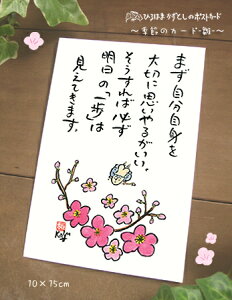 ひろはまかずとしのポストカード
～季節のカード・春～
まず自分自身を
大切に思いやるがいい。
そうすれば必ず
明日の「一歩」は
見えてきます。
10×15cm